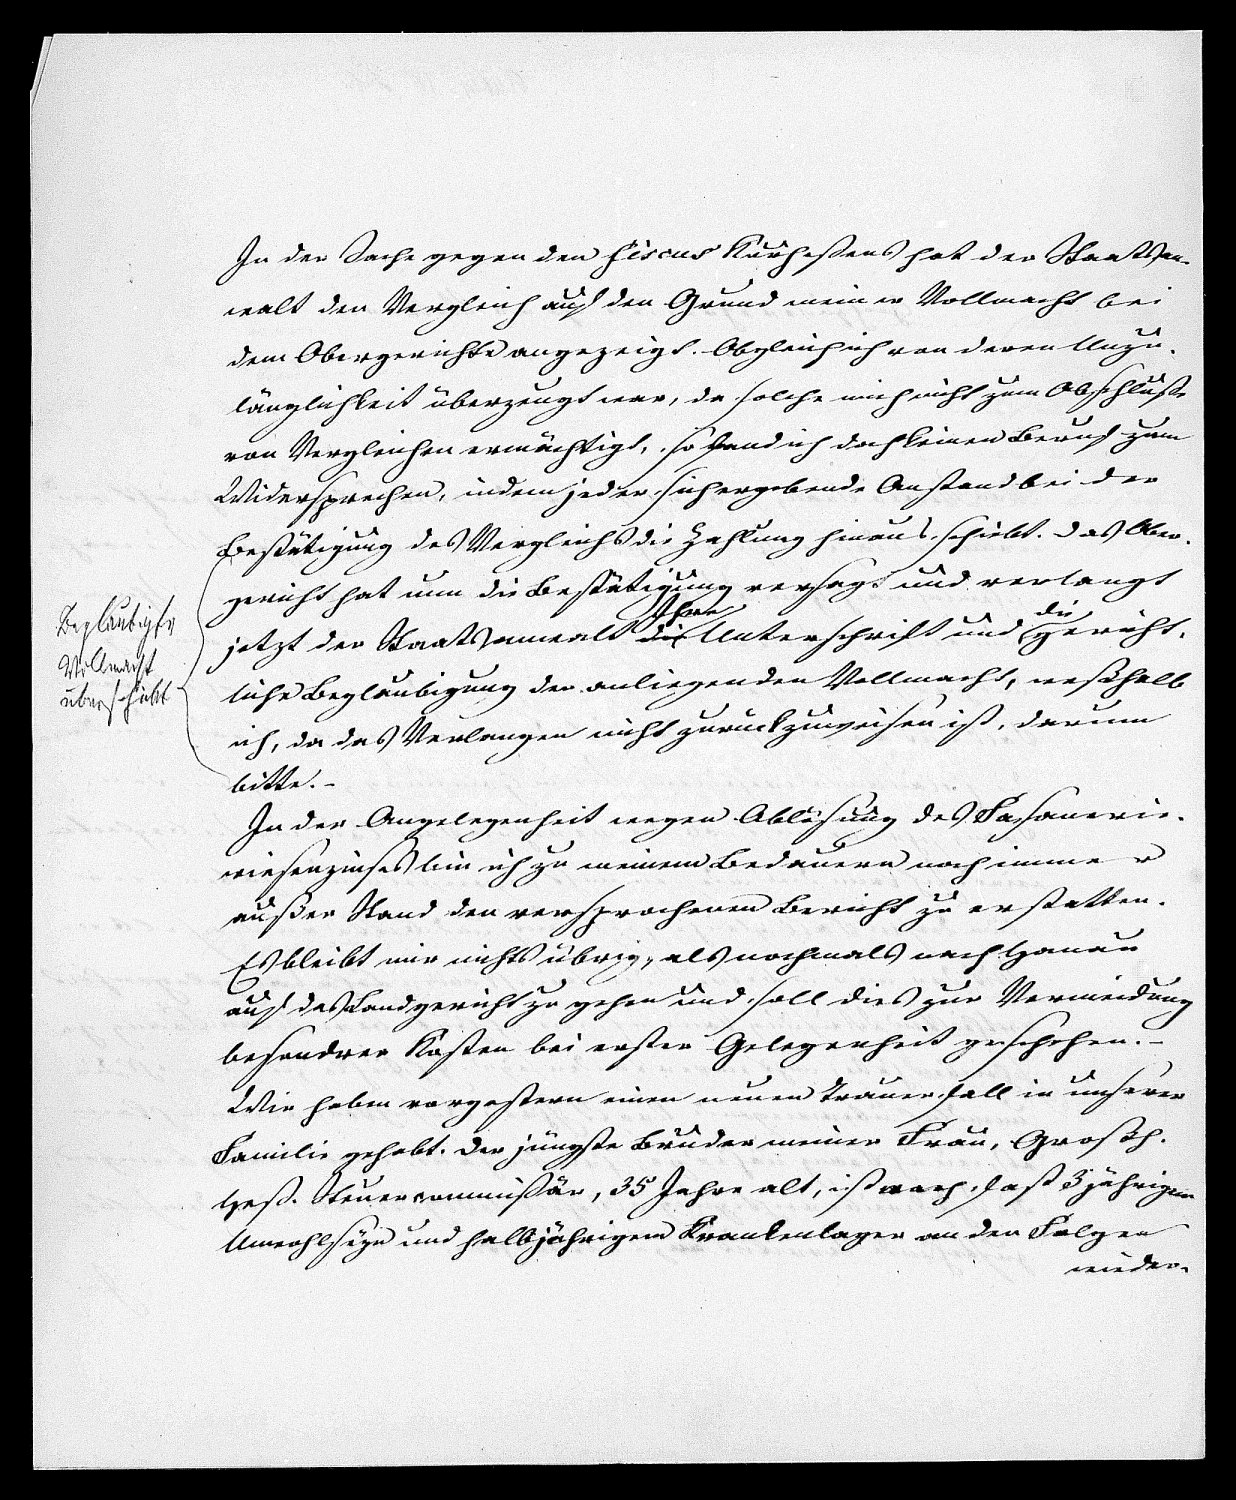 In der Sache gegen den Fiscus Kurhessens hat der Staatsan-
walt den Vergleich auf den Grund meiner Vollmacht bei
dem Obergerichte angezeigt. Obgleich ich von deren Unzu-
länglichkeit überzeugt war, da solche mich nicht zum Abschluße
von Vergleichen ermächtigt, so fand ich doch keinen Beruf zum
Widersprechen, indem jeder sich ergebende Anstand bei der
Bestätigung des Vergleichs die Zahlung hinaus schiebt. Das Ober-
gericht hat nun die Bestätigung versagt und verlangt
jetzt der Staatsanwalt die Ihre Unterschrift und die gericht-
liche Beglaubigung der anliegenden Vollmacht, weßhalb
ich, da das Verlangen nicht zurückzuweisen ist, darum
bitte. -
Beglaubigte
Vollmacht
überschickt
In der Angelegenheit wegen Ablösung des Fasanerie-
wiesenzinses bin ich zu meinem Bedauern noch immer
außer Stand den versprochenen Bericht zu erstatten.
Es bleibt mir nichts übrig, als nochmals nach Hanau
auf das Landgericht zu gehen und soll dies zur Vermeidung
besondrer Kosten bei erster Gelegenheit geschehen. -
Wir haben vorgestern einen neuen Trauerfall in unserer
Familie gehabt. Der jüngste Bruder meiner Frau, Großh.
Heß. Steuercommißär, 35 Jahre alt, ist nach fast 3jährigem
Unwohlseyn und halbjährigem Krankenlager an den Folgen
wieder-